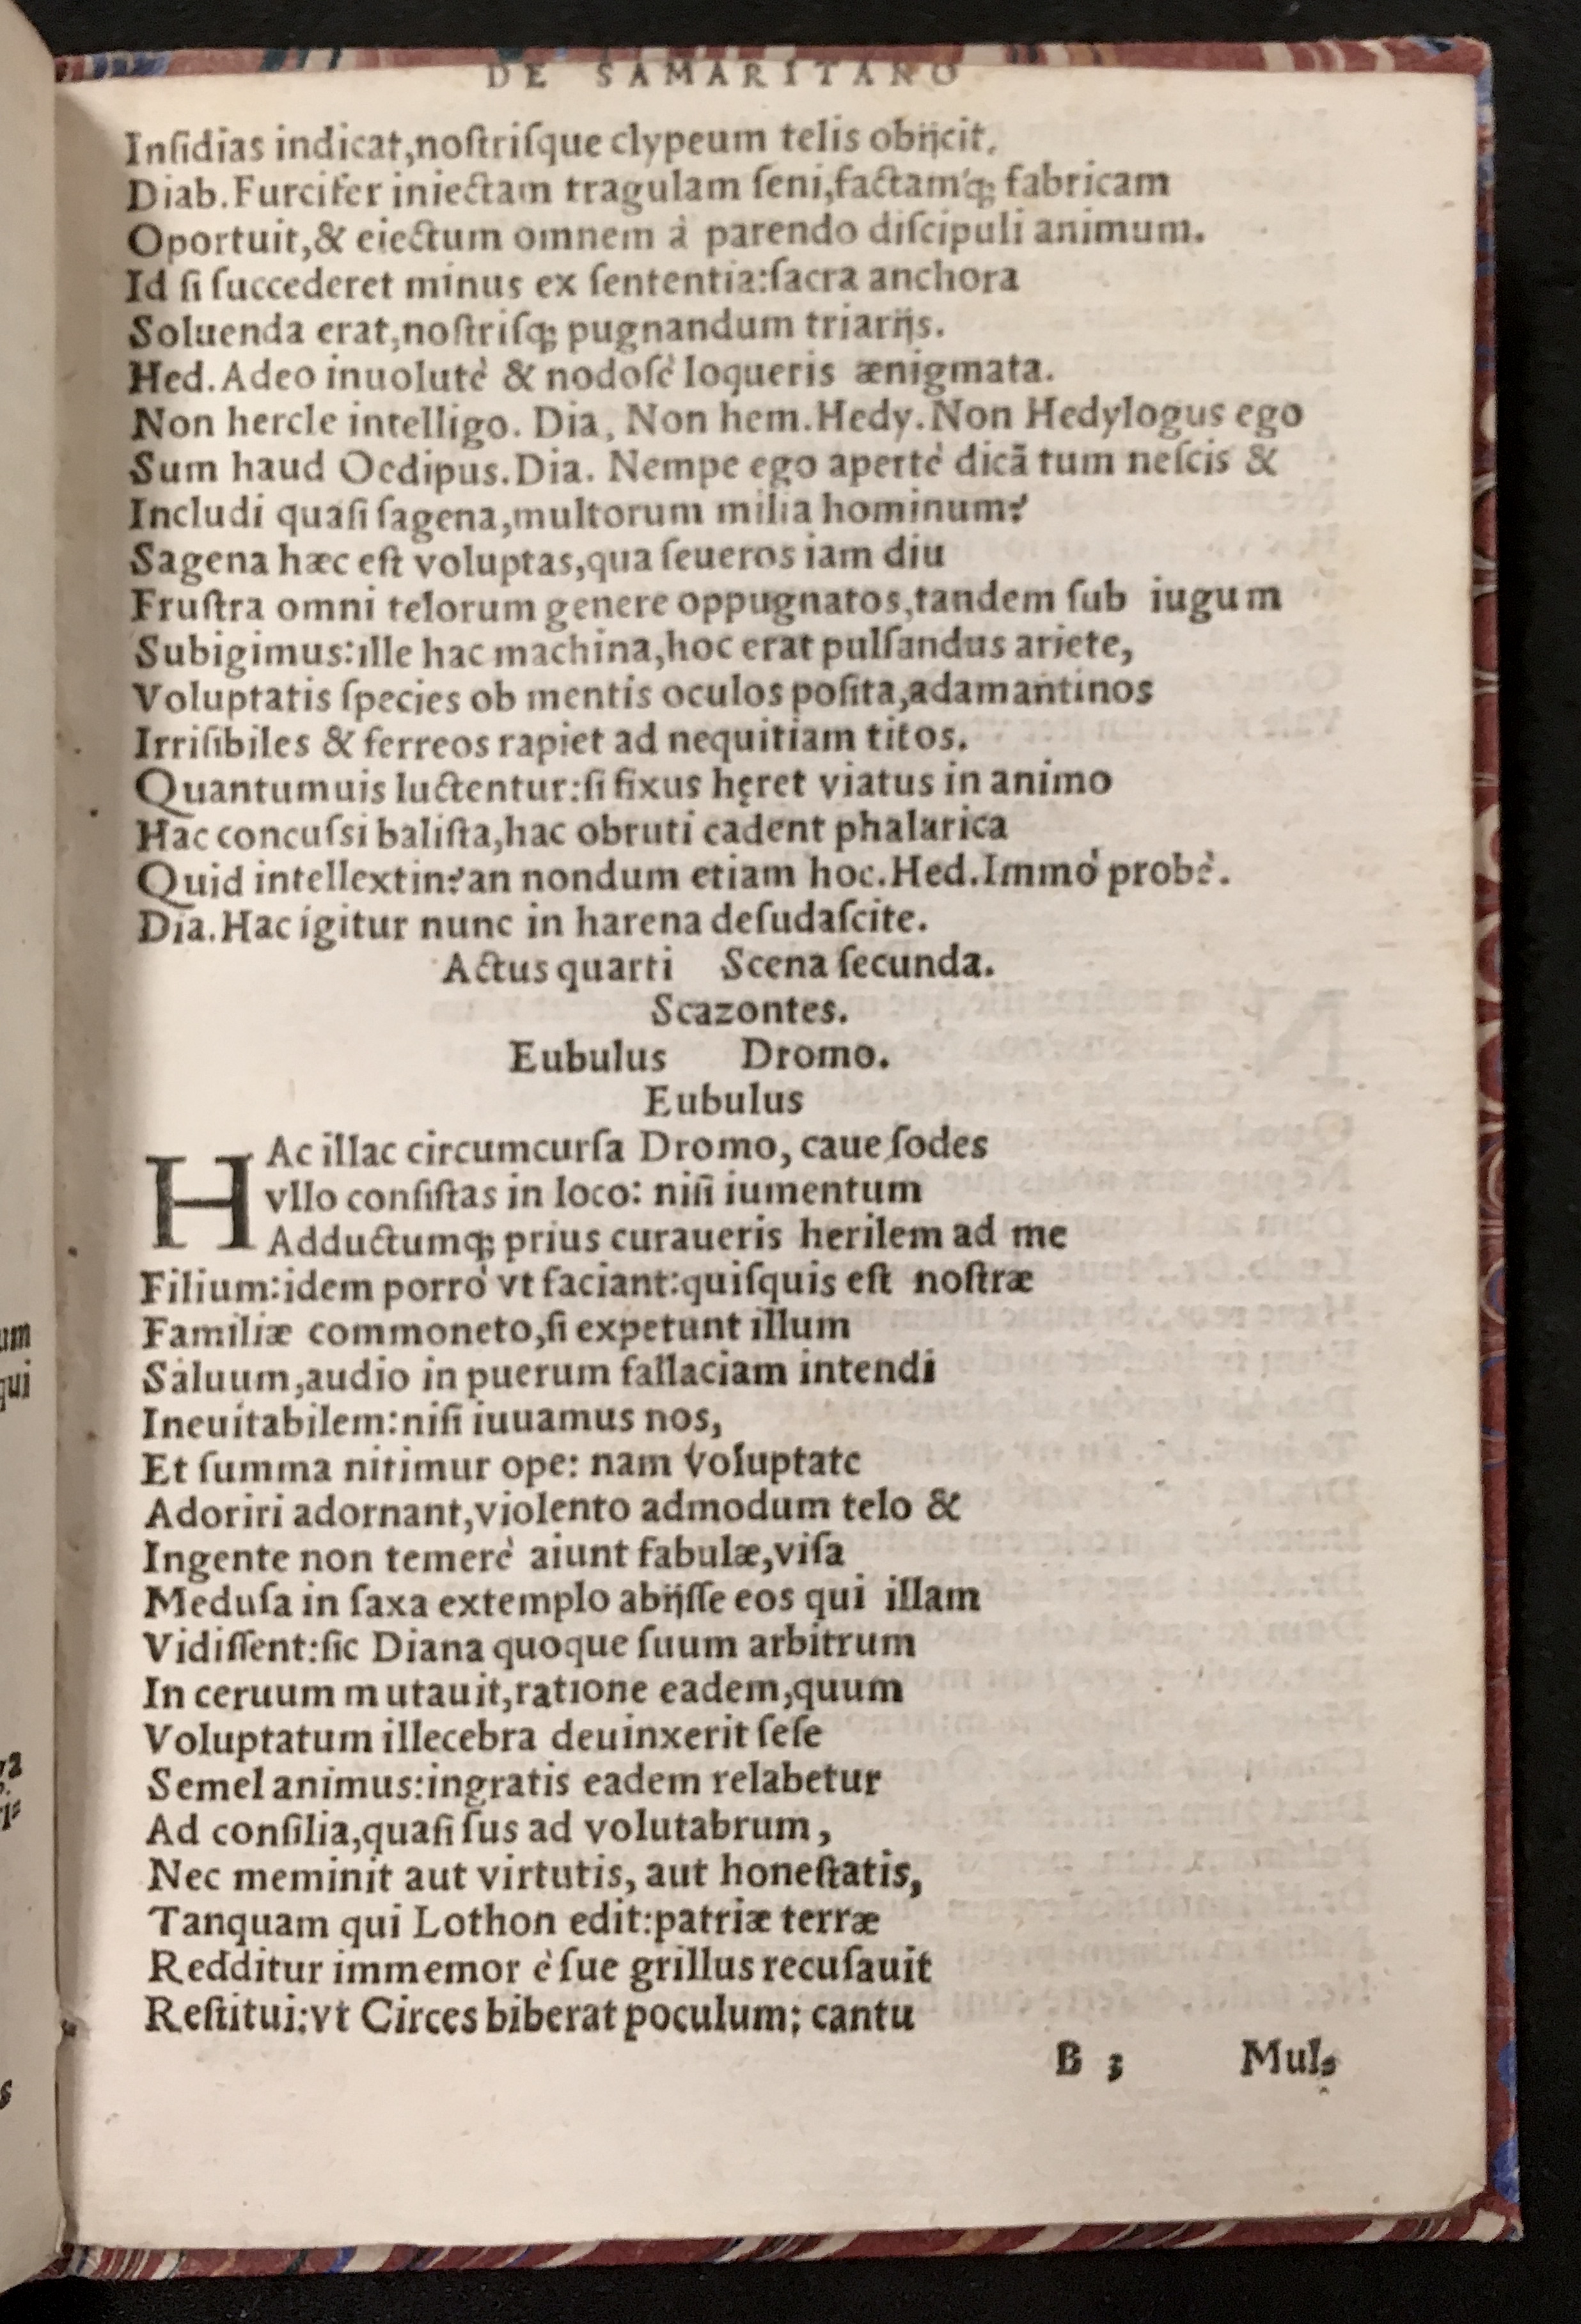 DE SAMARITANO
Inſidias indicat,noſtriſque clypeum telis obijcit.
Diab.Furcifer iniectam tragulam ſeni,factamq́; fabricam
Oportuit,& eiectum omnem à parendo diſcipuli animum.
Id ſi ſuccederet minus ex ſententia:ſacra anchora
Soluenda erat,noſtriſq; pugnandum triarijs.
Hed.Adeo inuolutè & nodoſè loqueris ænigmata.
Non hercle intelligo. Dia, Non hem.Hedy.Non Hedylogus ego
Sum haud Oedipus.Dia. Nempe ego apertè dicã tum neſcis &
Includi quaſi ſagena,multorum milia hominum?
Sagena hæc eſt voluptas,qua ſeueros iam diu
Fruſtra omni telorum genere oppugnatos,tandem ſub iugum
Subigimus:ille hac machina,hoc erat pulſandus ariete,
Voluptatis ſpecies ob mentis oculos poſita,adamantinos
Irriſibiles & ferreos rapiet ad nequitiam titos.
Quantumuis luctentur:ſi fixus hęret viatus in animo
Hac concuſsi baliſta,hac obruti cadent phalarica
Quid intellextin?an nondum etiam hoc.Hed.Immò probè.
Dia.Hac igitur nunc in harena deſudaſcite.
Actus quarti Scena ſecunda.
Scazontes.
Eubulus Dromo.
Eubulus
HAc illac circumcurſa Dromo, caue ſodes
vllo conſiſtas in loco: niſi iumentum
Adductumq; prius curaueris herilem ad me
Filium:idem porrò vt faciant:quiſquis eſt noſtræ
Familiæ commoneto,ſi expetunt illum
Saluum,audio in puerum fallaciam intendi
Ineuitabilem:niſi iuuamus nos,
Et ſumma nitimur ope: nam voluptate
Adoriri adornant,violento admodum telo &
Ingente non temerè aiunt fabulæ,viſa
Meduſa in ſaxa extemplo abijſſe eos qui illam
Vidiſſent:ſic Diana quoque ſuum arbitrum
In ceruum mutauit,ratione eadem,quum
Voluptatum illecebra deuinxerit ſeſe
Semel animus:ingratis eadem relabetur
Ad conſilia,quaſi ſus ad volutabrum,
Nec meminit aut virtutis, aut honeſtatis,
Tanquam qui Lothon edit:patriæ terræ
Redditur immemor è ſue grillus recuſauit
Reſtitui:vt Circes biberat poculum; cantu
B 3 Mul-